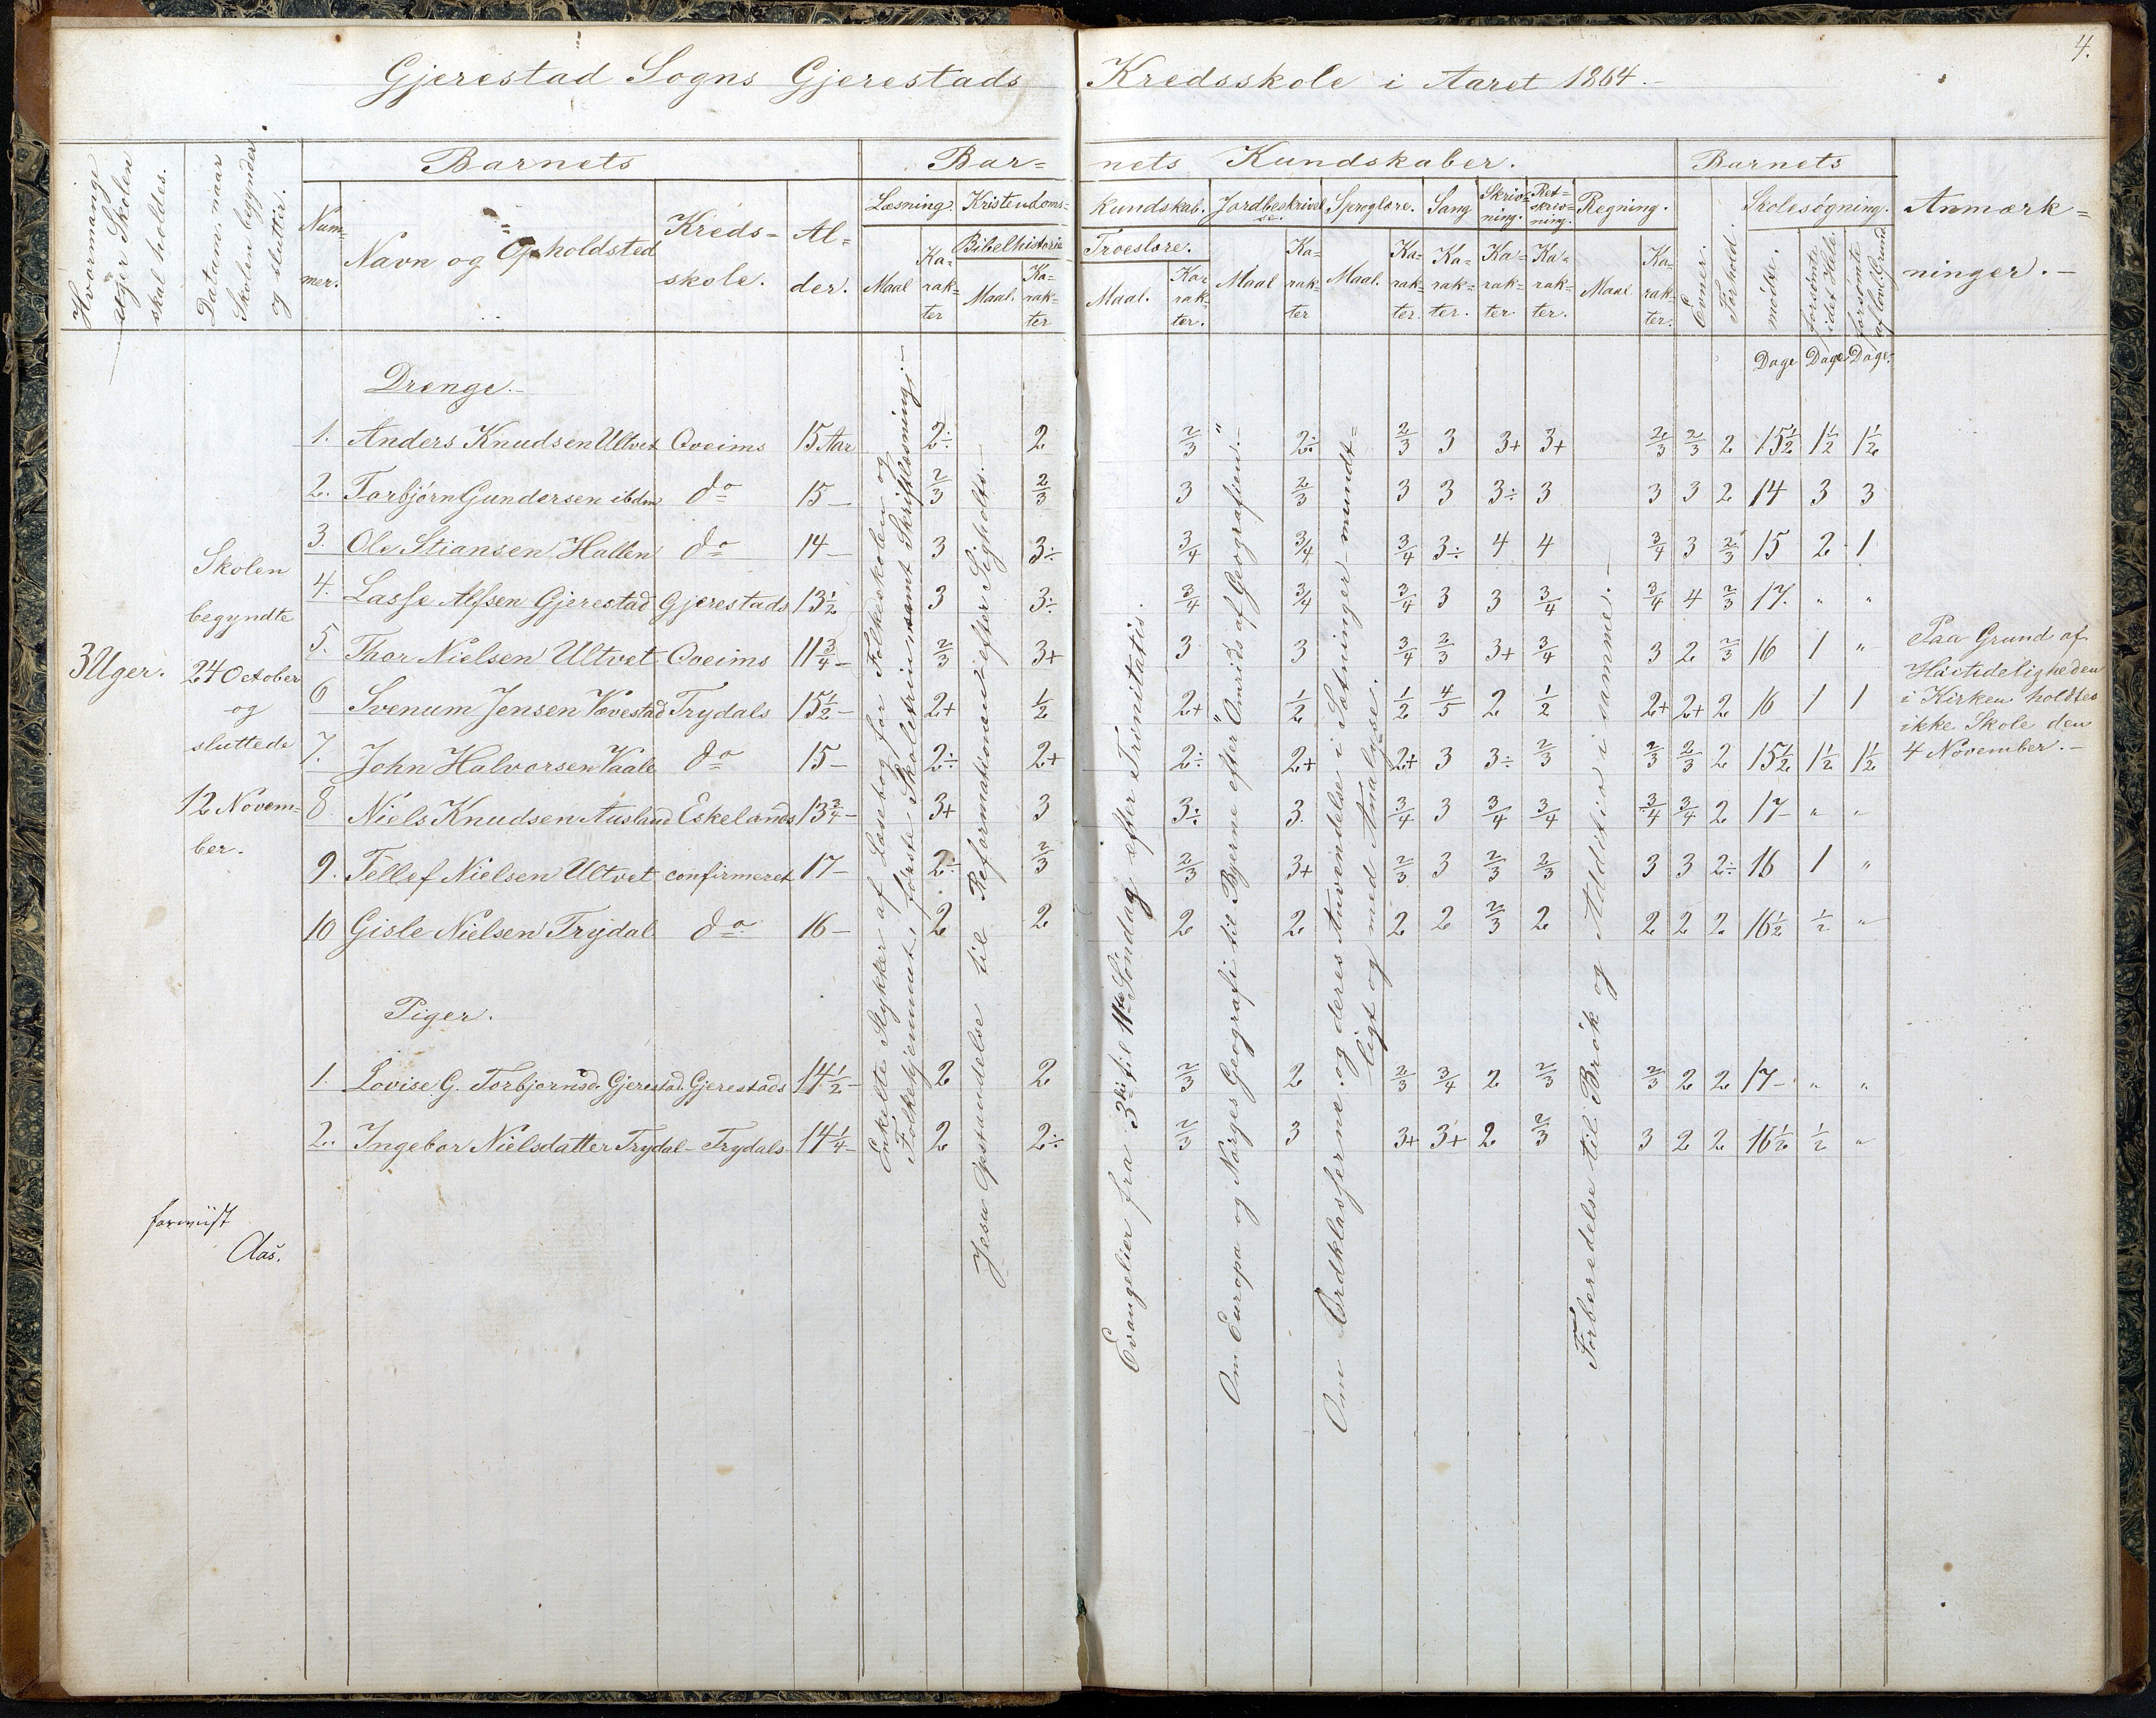 4.
Gjerestad Sogns Gjerestads Kredsskole i Aaret 1864.-
Hvormange Uger Skolen skal holdes.
Datum, naar Skolen begynder og slutter.
Barnets
Nummer.
Navn og Opholdsted
Kredsskole.
Alder.
Barnets Kundskaber.
Læsning. Maal Karakter
Kristendomskundskab.
Bibelhistorie Maal. Karakter
Troeslære. Maal. Karakter.
Jordbeskrivelse. Maal Karakter
Sproglære. Maal. Karakter.
Sang Karakter.
Skrivning. Karakter
Retskrivning. Karakter.
Regning. Maal Karakter.
Barnets
Evner.
Forhold.
Skolesøgning.
mødte. Dage
forsømte i det Hele. Dage
forsømte af lovl. Grund Dage.
Anmærkninger.-
3 Uger.
Skolen
begyndte
24 October
og
sluttede
12 Novem=
ber.
Drenge.-
1. Anders Knudsen Ultvet Qveims 15 Aar 2÷ 2 2/3 2÷ 2/3 3 3+ 3+ 2/3 2/3 2 15½ 1½ 1½
2. Torbjørn Gundersen ibdm do 15- 2/3 2/3 3 2/3 3 3 3÷ 3 3 3 2 14 3 3
3. Ole Stiansen Hallen do 14- 3 3÷ 3/4 3/4 3/4 3÷ 4 4 3/4 3 2/3 15 2 1
4. Lasse Alfsen Gjerestad Gjerestads 13½ 3 3÷ 3/4 3/4 3/4 3 3 3/4 3/4 4 2/3 17. " "
5. Thor Nielsen Ultvet Qveims 11¾- 2/3 3+ 3 3 3/4 2/3 3+ 3/4 3 2 2/3 16 1 "
6 Svenum Jensen Vævestad Trydals 15½- 2+ 1/2 2+ 1/2 1/2 4/5 2 1/2 2+ 2+ 2 16 1 1
7. John Halvorsen Vaale do 15- 2÷ 2+ 2÷ 2+ 2+ 3 3÷ 2/3 2/3 2/3 2 15½ 1½ 1½
8. Niels Knudsen Ausland Eskelands 13¾- 3+ 3 3÷ 3. 3/4 3 3/4 3/4 3/4 3/4 2 17- " "
9. Tellef Nielsen Ultvet confirmeret 17- 2÷ 2/3 2/3 3+ 2/3 3 2/3 2/3 3 3 2÷ 16 1 "
10 Gisle Nielsen Trydal do 16- 2 2 2 2 2 2 2/3 2 2 2 2 16½ ½ "
Piger.
1. Lovise G. Torbjørnsd. Gjerestad. Gjerestads 14½- 2 2 2/3 2 2/3 3/4 2 2/3 2/3 2 2 17- " "
2. Ingebor Nielsdatter Trydal- Trydals 14¼- 2 2÷ 2/3 3 3+ 3+ 2 2/3 3 2 2 16½ ½ "
Enkelte Stykker af Læsebog for Folkeskolen og
Folkehjemmet, første Skoletrin, samt Skriftlæsning.-
Jesu Opstandelse til Reformationen efter Sigholts.-
Evangelier fra 3die til 11te Søndag efter Trinitatis.
Om Europa og Norges Geografi til Byerne efter "Omrids af Geografien."-
Om Ordklasserne og deres Anvendelse i Sætninger - mundt=
ligt og med Analyse.
Forberedelse til Brøk og Addition i samme.-
Paa Grund af
Høitideligheden
i Kirken holdtes
ikke Skole den
4 November.-
forevist
Aas.